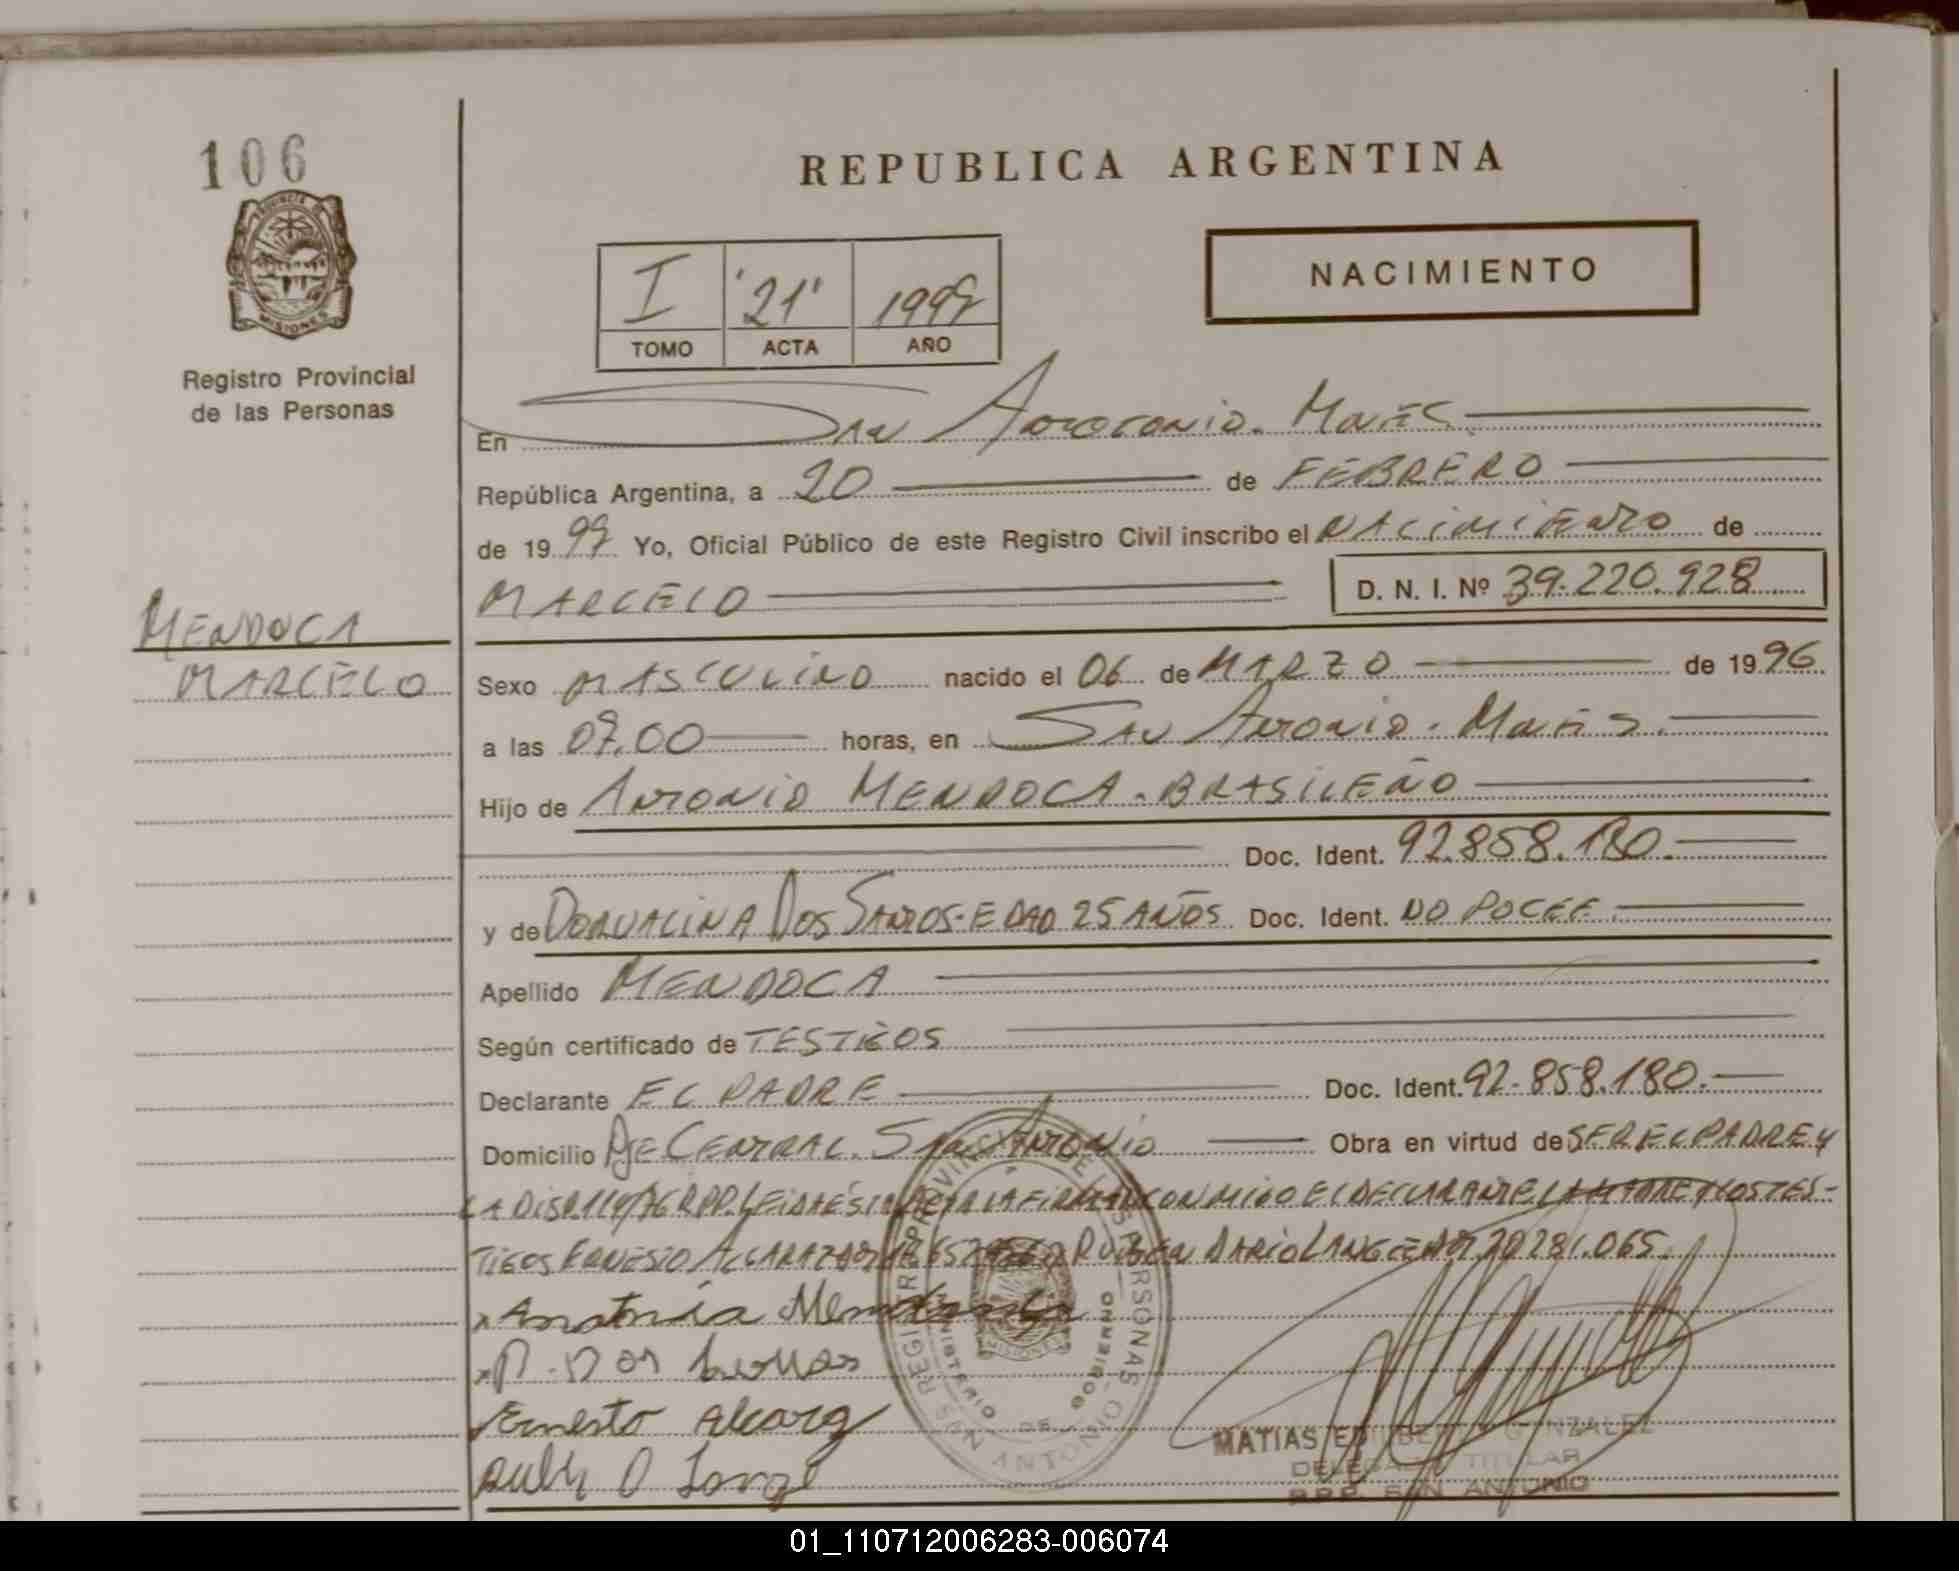 106
REPUBLICA ARGENTINA
PROVINCIA DE MISIONES
Registro Provincial
de las Personas
I '21' 1997
TOMO ACTA AÑO
NACIMIENTO
En San Antonio. Mnes.
República Argentina, a 20 de FEBRERO
de 1997 Yo, Oficial Público de este Registro Civil inscribo el NACIMIENTO de
MARCELO D. N. I. Nº 39.220.928
MENDOCA
MARCELO
Sexo MASCULINO nacido el 06 de MARZO de 1996
a las 07.00 horas, en San Antonio. Mnes.
Hijo de Antonio MENDOCA. BRASILEÑO
Doc. Ident. 92.858.180.
y de DORVALINA DOS SANTOS. EDAD 25 AÑOS Doc. Ident. NO POCEE.
Apellido MENDOCA
Según certificado de TESTIGOS
Declarante EL PADRE Doc. Ident. 92.858.180.
Domicilio DE CENTRAL. SAN ANTONIO Obra en virtud de SER EL PADRE y
LA DISP. 114/76 RPP. LEIDA ESTA ACTA LA FIRMAN CONMIGO EL DECLARANTE LA MADRE y LOS TES-
TIGOS ERNESTO ALCARAZ RUBEN DARIO LANGE 20.281.065.
x Antonia Mendonça
x D. Dos
Ernesto Alcaraz
Rubén D Lange
REGISTRO PROVINCIAL DE LAS PERSONAS
MINISTERIO DE GOBIERNO
MISIONES
SAN ANTONIO
MATIAS EDILBERTO GONZALEZ
DELEGADO TITULAR
R.P.P. SAN ANTONIO
01_110712006283-006074